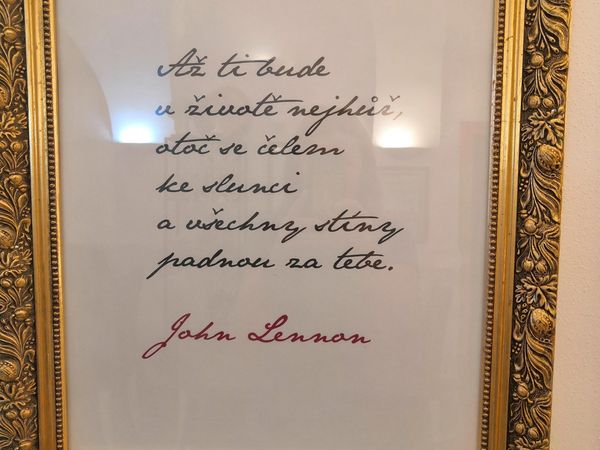 Až ti bude
v životě nejhůř,
otoč se čelem
ke slunci
a všechny stíny
padnou za tebe.
John Lennon